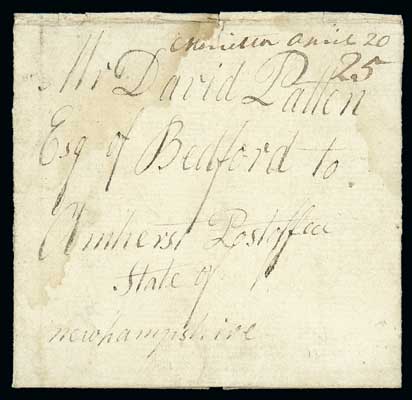 April 20
25
Mr David Patten
Esq of Bedford to
Amherst Postoffice
State of
newhampshire